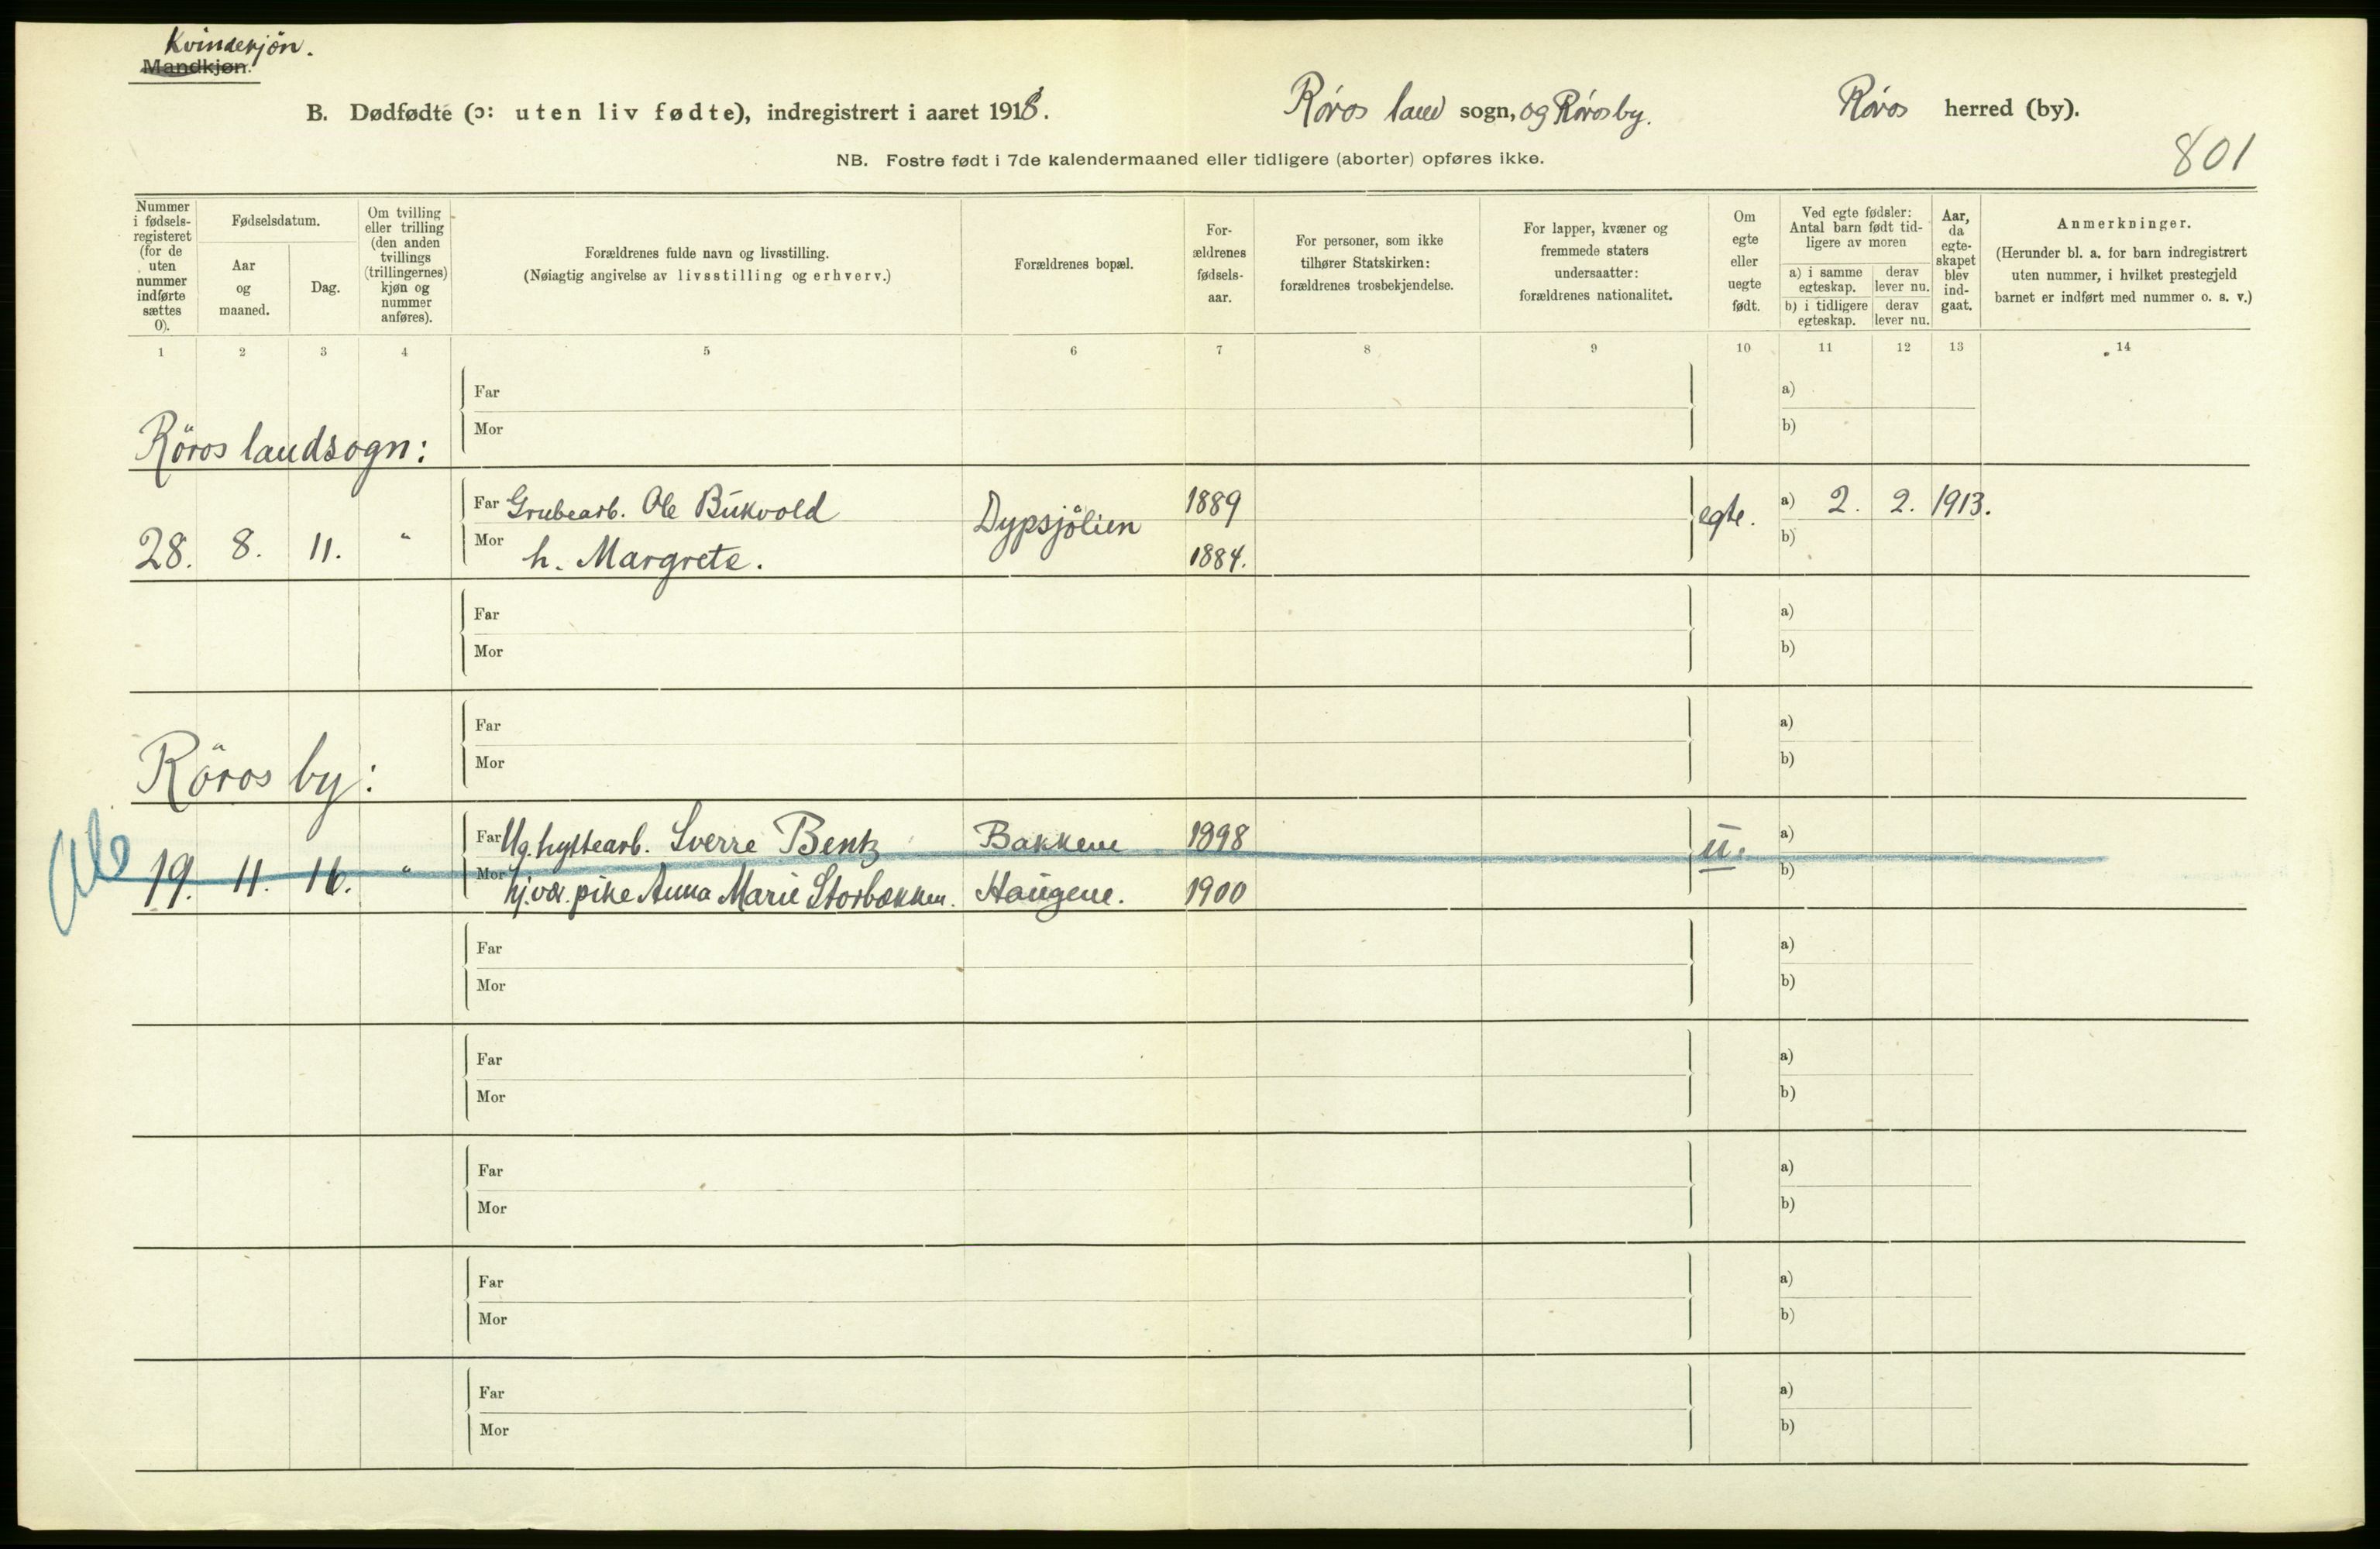 Kvindekjön.
Mandkjøn.
B. Dødfødte (ɔ: uten liv fødte), indregistrert i aaret 1918.
Röros land sogn, og Rörosby.
Röros herred (by).
801
NB. Fostre født i 7de kalendermaaned eller tidligere (aborter) opføres ikke.
Nummer i fødsels-registeret (for de uten nummer indførte sættes 0).
Fødselsdatum.
Aar og maaned.
Dag.
Om tvilling eller trilling (den anden tvillings (trillingernes) kjøn og nummer anføres).
Forældrenes fulde navn og livsstilling.
(Nøiagtig angivelse av livsstilling og erhverv.)
Forældrenes bopæl.
For-ældrenes fødsels-aar.
For personer, som ikke tilhører Statskirken: forældrenes trosbekjendelse.
For lapper, kvæner og fremmede staters undersaatter: forældrenes nationalitet.
Om egte eller uegte født.
Ved egte fødsler: Antal barn født tid-ligere av moren
a) i samme egteskap.
derav lever nu.
b) i tidligere egteskap.
derav lever nu.
Aar, da egte-skapet blev ind-gaat.
Anmerkninger.
(Herunder bl. a. for barn indregistrert uten nummer, i hvilket prestegjeld barnet er indført med nummer o. s. v.)
1 2 3 4 5 6 7 8 9 10 11 12 13 14
Far a)
Mor b)
Röros landsogn:
Far Grubearb. Ole Bukvold Dypsjölien 1889 egte. a) 2. 2. 1913.
28. 8. 11. " Mor h. Margrete. 1884. b)
Far a)
Mor b)
Far a)
Mor b)
Röros by:
Far Ug. hyttearb. Sverre Bentz Bakkene 1898 u. a)
19. 11. 16. " Mor hj.vær. pike Anna Marie Storbækken. Haugene. 1900 b)
Far a)
Mor b)
Far a)
Mor b)
Far a)
Mor b)
Far a)
Mor b)
Far a)
Mor b)